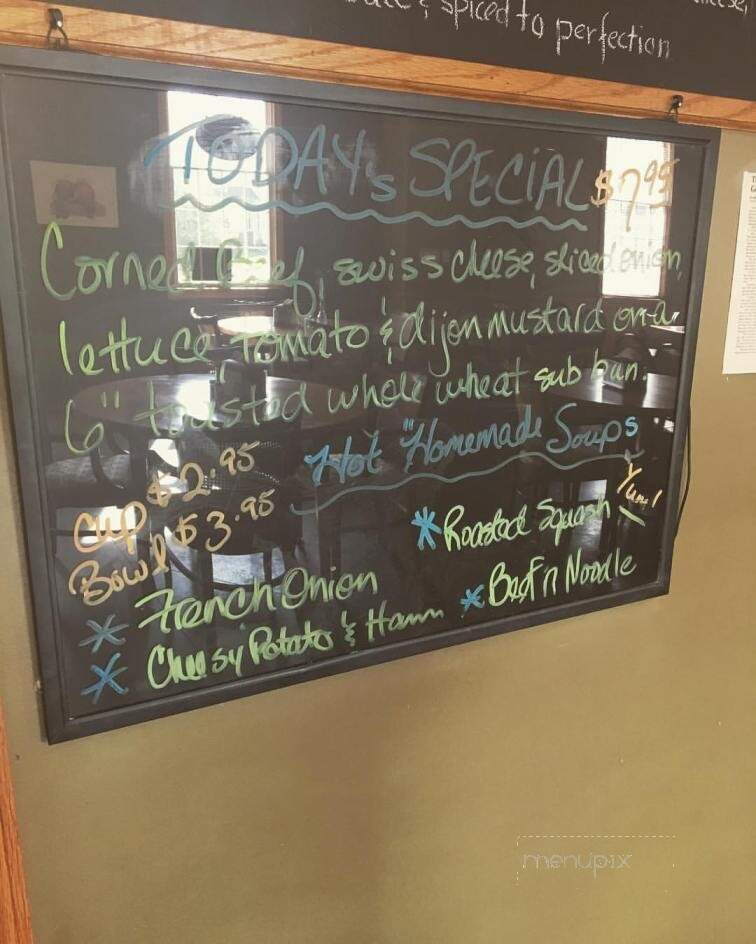 & spiced to perfection
TODAY's SPECIAL $7.95
Corned Beef, swiss cheese, sliced onion,
lettuce, Tomato & dijon mustard on a
6" toasted whole wheat sub bun.
Hot "Homemade Soups
Cup $2.95
Bowl $3.95
Yum!
* Roasted Squash
* French Onion
* Beef n Noodle
* Cheesy Potato & Ham
menupix